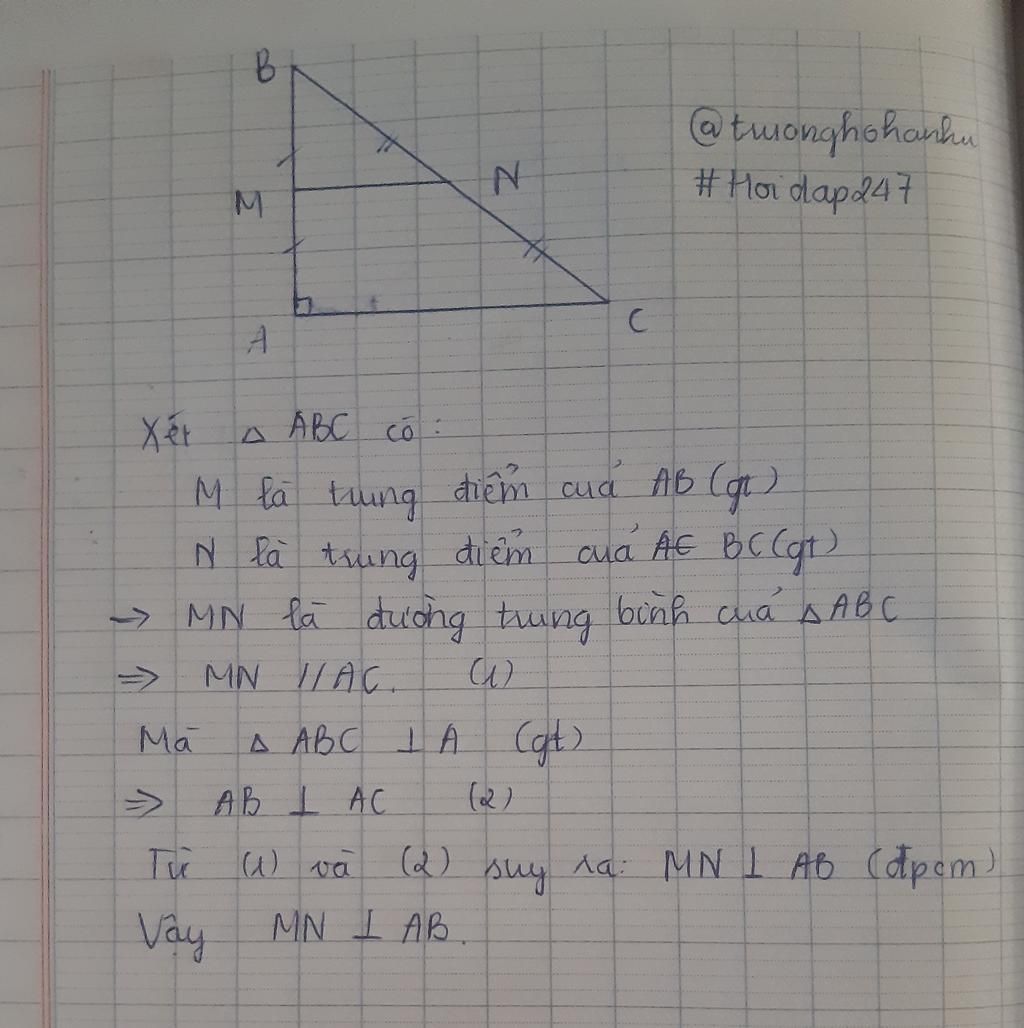 B
@truonghohanhu
M
N
#Hoidap247
A
C
Xét △ ABC có:
M là trung điểm của AB (gt)
N là trung điểm của BC (gt)
→ MN là đường trung bình của △ ABC
⇒ MN // AC. (1)
Mà △ ABC ⊥ A (gt)
⇒ AB ⊥ AC (2)
Từ (1) và (2) suy ra: MN ⊥ AB (đpcm)
Vậy MN ⊥ AB.